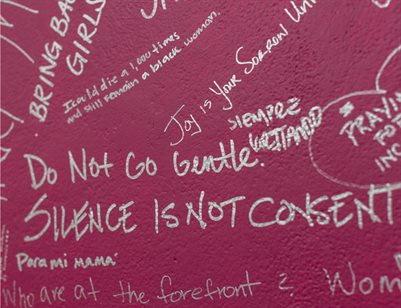 BRING BA
GIRLS
I could die a 1,000 times
and still remain a black woman.
Joy is Your Sorrow Un
SIEMPRE
PRAYIN
FO
INC
Do Not Go Gentle.
SILENCE IS NOT CONSENT
Para mi mamá
Who are at the forefront
Wom